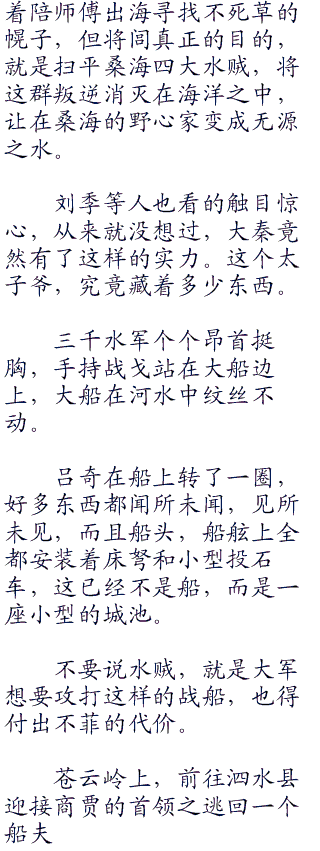 着陪师傅出海寻找不死草的
幌子，但将闾真正的目的，
就是扫平桑海四大水贼，将
这群叛逆消灭在海洋之中，
让在桑海的野心家变成无源
之水。
刘季等人也看的触目惊
心，从来就没想过，大秦竟
然有了这样的实力。这个太
子爷，究竟藏着多少东西。
三千水军个个昂首挺
胸，手持战戈站在大船边
上，大船在河水中纹丝不
动。
吕奇在船上转了一圈，
好多东西都闻所未闻，见所
未见，而且船头，船舷上全
都安装着床弩和小型投石
车，这已经不是船，而是一
座小型的城池。
不要说水贼，就是大军
想要攻打这样的战船，也得
付出不菲的代价。
苍云岭上，前往泗水县
迎接商贾的首领之逃回一个
船夫